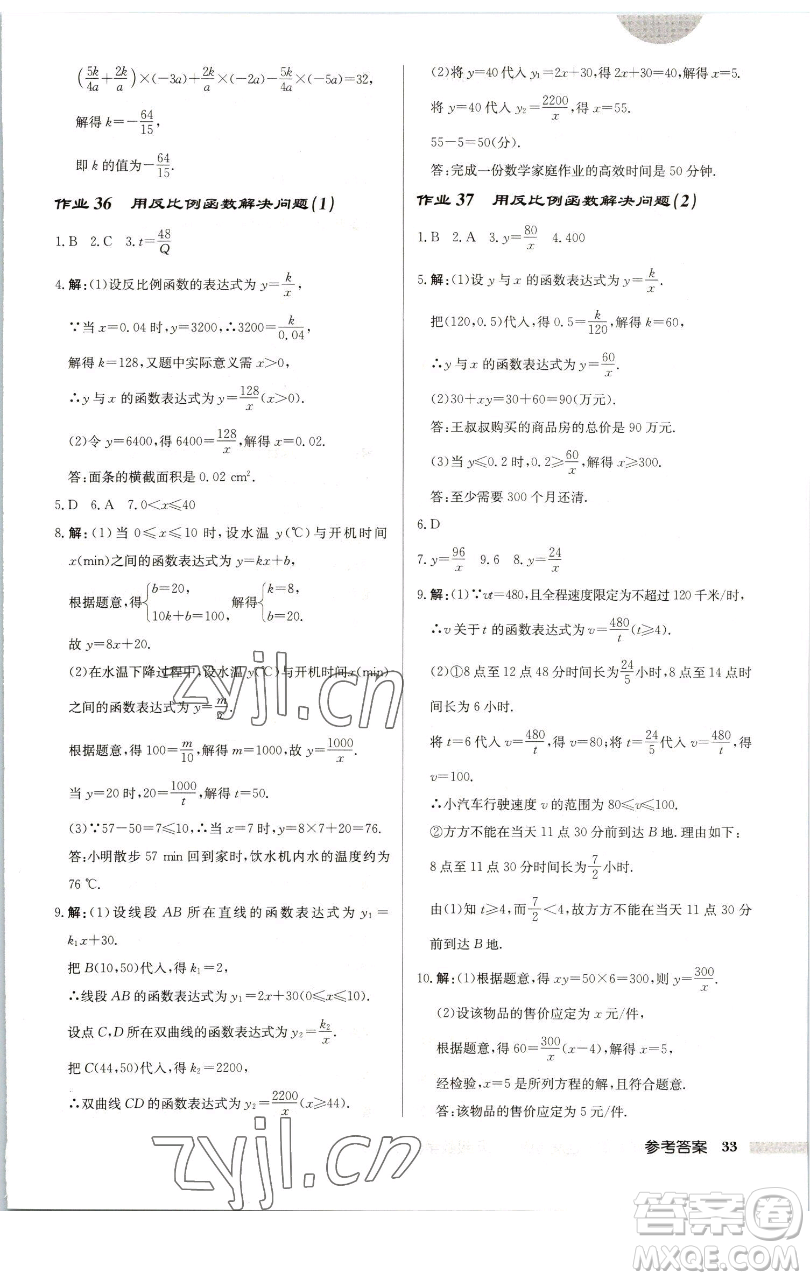 (5k/4a+2k/a)×(−3a)+2k/a×(−2a)−5k/4a×(−5a)=32,
解得 k=−64/15,
即 k 的值为−64/15.
作业 36 用反比例函数解决问题(1)
1. B 2. C 3. t=48/Q
4. 解:(1)设反比例函数的表达式为 y=k/x.
∵当 x=0.04 时,y=3200,∴3200=k/0.04,
解得 k=128,又题中实际意义需 x>0,
∴y 与 x 的函数表达式为 y=128/x(x>0).
(2)令 y=6400,得 6400=128/x,解得 x=0.02.
答:面条的横截面积是 0.02 cm².
5. D 6. A 7. 0<x≤40
8. 解:(1)当 0≤x≤10 时,设水温 y(℃)与开机时间
x(min)之间的函数表达式为 y=kx+b,
根据题意,得{b=20, 10k+b=100, 解得{k=8, b=20.
故 y=8x+20.
(2)在水温下降过程中,设水温 y(℃)与开机时间 x(min)
之间的函数表达式为 y=m/x.
根据题意,得 100=m/10,解得 m=1000,故 y=1000/x.
当 y=20 时,20=1000/t,解得 t=50.
(3)∵57−50=7≤10,∴当 x=7 时,y=8×7+20=76.
答:小明散步 57 min 回到家时,饮水机内水的温度约为
76 ℃.
9. 解:(1)设线段 AB 所在直线的函数表达式为 y₁=
k₁x+30.
把 B(10,50)代入,得 k₁=2,
∴线段 AB 的函数表达式为 y₁=2x+30(0≤x≤10).
设点 C,D 所在双曲线的函数表达式为 y₂=k₂/x.
把 C(44,50)代入,得 k₂=2200,
∴双曲线 CD 的函数表达式为 y₂=2200/x(x≥44).
(2)将 y=40 代入 y₁=2x+30,得 2x+30=40,解得 x=5.
将 y=40 代入 y₂=2200/x,得 x=55.
55−5=50(分).
答:完成一份数学家庭作业的高效时间是 50 分钟.
作业 37 用反比例函数解决问题(2)
1. B 2. A 3. y=80/x 4. 400
5. 解:(1)设 y 与 x 的函数表达式为 y=k/x.
把(120,0.5)代入,得 0.5=k/120,解得 k=60,
∴y 与 x 的函数表达式为 y=60/x.
(2)30+xy=30+60=90(万元).
答:王叔叔购买的商品房的总价是 90 万元.
(3)当 y≤0.2 时,0.2≥60/x,解得 x≥300.
答:至少需要 300 个月还清.
6. D
7. y=96/x 9.6 8. y=24/x
9. 解:(1)∵vt=480,且全程速度限定为不超过 120 千米/时,
∴v 关于 t 的函数表达式为 v=480/t(t≥4).
(2)①8 点至 12 点 48 分时间长为24/5小时,8 点至 14 点时
间长为 6 小时.
将 t=6 代入 v=480/t,得 v=80;将 t=24/5代入 v=480/t,得
v=100.
∴小汽车行驶速度 v 的范围为 80≤v≤100.
②方方不能在当天 11 点 30 分前到达 B 地.理由如下:
8 点至 11 点 30 分时间长为7/2小时.
由(1)知 t≥4,而7/2<4,故方方不能在当天 11 点 30 分
前到达 B 地.
10. 解:(1)根据题意,得 xy=50×6=300,则 y=300/x.
(2)设该物品的售价应定为 x 元/件,
根据题意,得 60=300/x(x−4),解得 x=5,
经检验,x=5 是所列方程的解,且符合题意.
答:该物品的售价应定为 5 元/件.
参考答案 33
zyjl.cn
zyjl.cn
答案圈
MXQE.COM